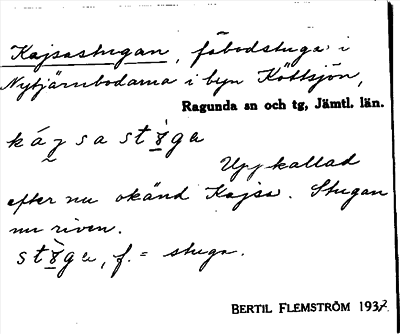 Kajsastugan, fäbodstuga i
Nytjärnbodarna i byn Köttsjön,
Ragunda sn och tg, Jämtl. län.
Uppkallad
efter nu okänd Kajsa. Stugan
nu riven.
f. = stuga.
BERTIL FLEMSTRÖM 1932.